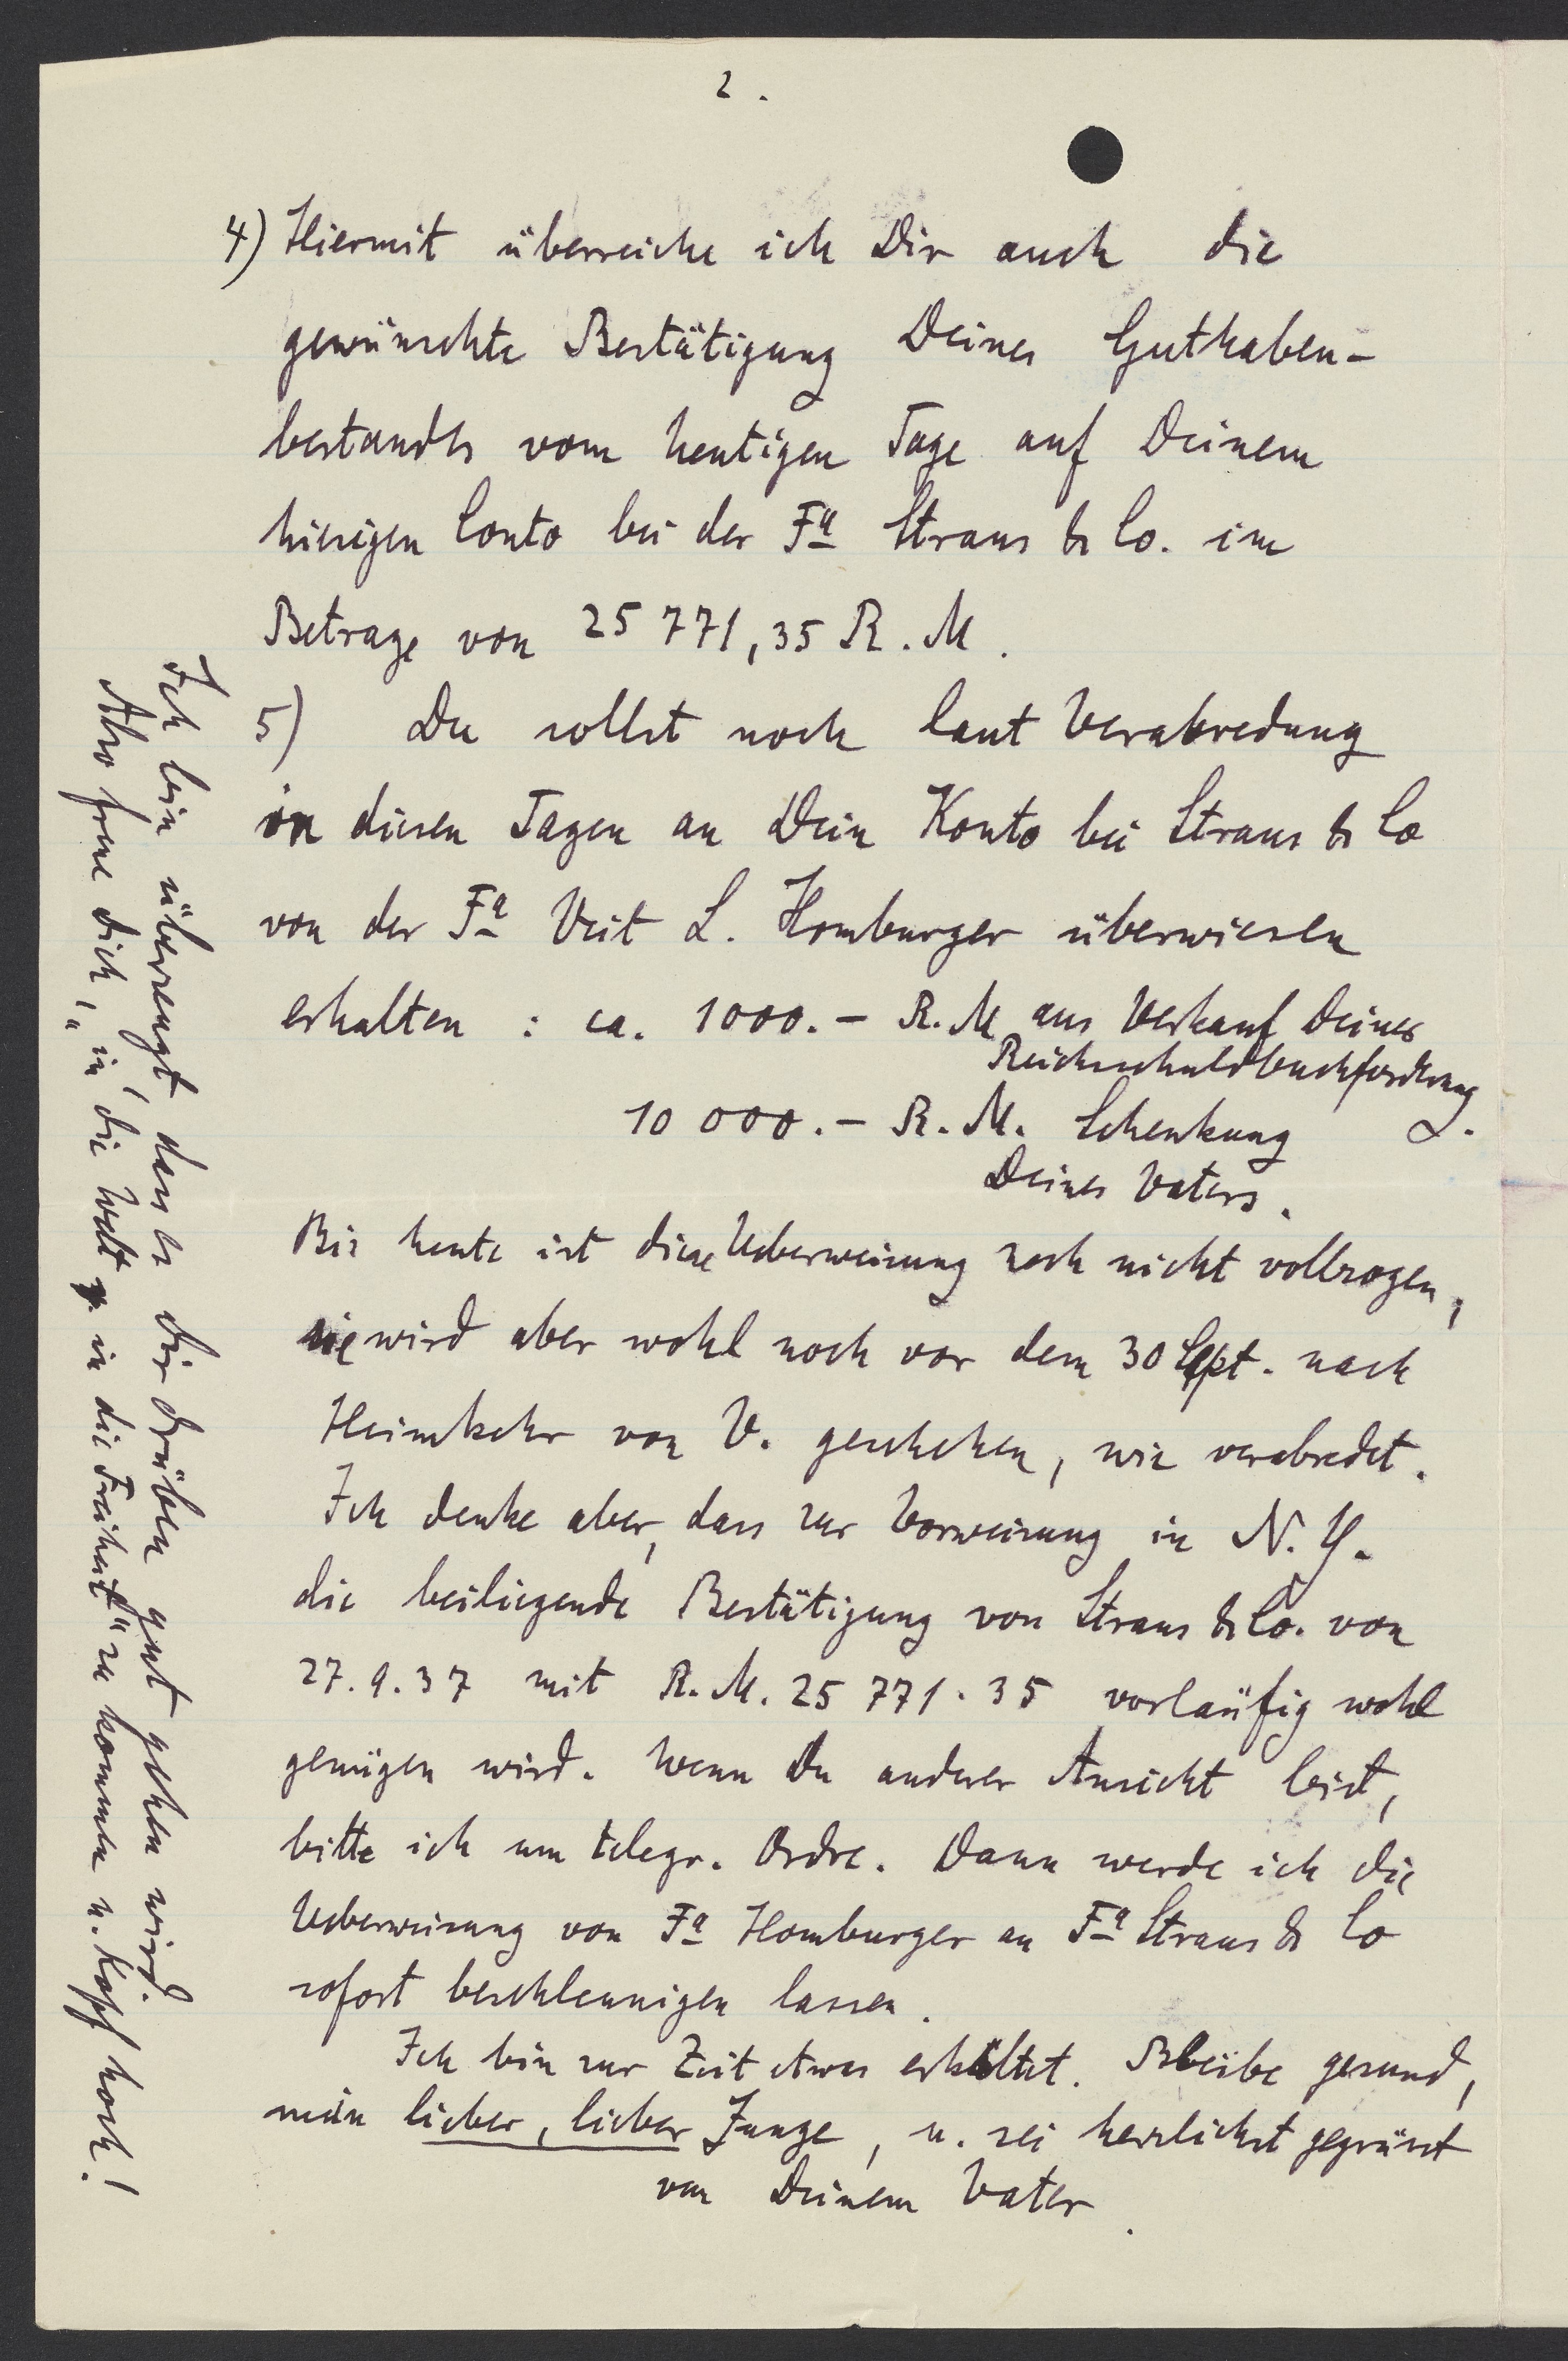 2.
4) Hiermit überreiche ich Dir auch die
gewünschte Bestätigung Deines Guthaben-
bestandes vom heutigen Tage auf Deinem
hiesigen Conto bei der Fa Straus & Co. im
Betrage von 25 771,35 R.M.
5) Du sollst noch laut Verabredung
in diesen Tagen an Dein Konto bei Straus & Co
von der Fa Veit L. Homburger überwiesen
erhalten : ca. 1000.- R.M aus Verkauf Deiner
Reichsschuldbuchforderung
10 000.- R.M. Schenkung
Deines Vaters.
Bis heute ist diese Ueberweisung noch nicht vollzogen,
sie wird aber wohl noch vor dem 30 Sept. nach
Heimkehr von V. geschehen, wie verabredet.
Ich denke aber, dass zur Vorweisung in N.Y.
die beiliegende Bestätigung von Straus & Co. von
27.9.37 mit R.M. 25 771.35 vorläufig wohl
genügen wird. Wenn Du anderer Ansicht bist,
bitte ich um telegr. Ordre. Dann werde ich die
Ueberweisung von Fa Homburger an Fa Straus & Co
sofort beschleunigen lassen.
Ich bin zur Zeit etwas erkältet. Bleibe gesund,
mein lieber, lieber Junge, u. sei herzlichst gegrüsst
von Deinem Vater.
Ich bin überzeugt, dass es dir drüben gut gehen wird.
Also freue dich, "in die Welt in die Freiheit" zu kommen u. Kopf hoch!